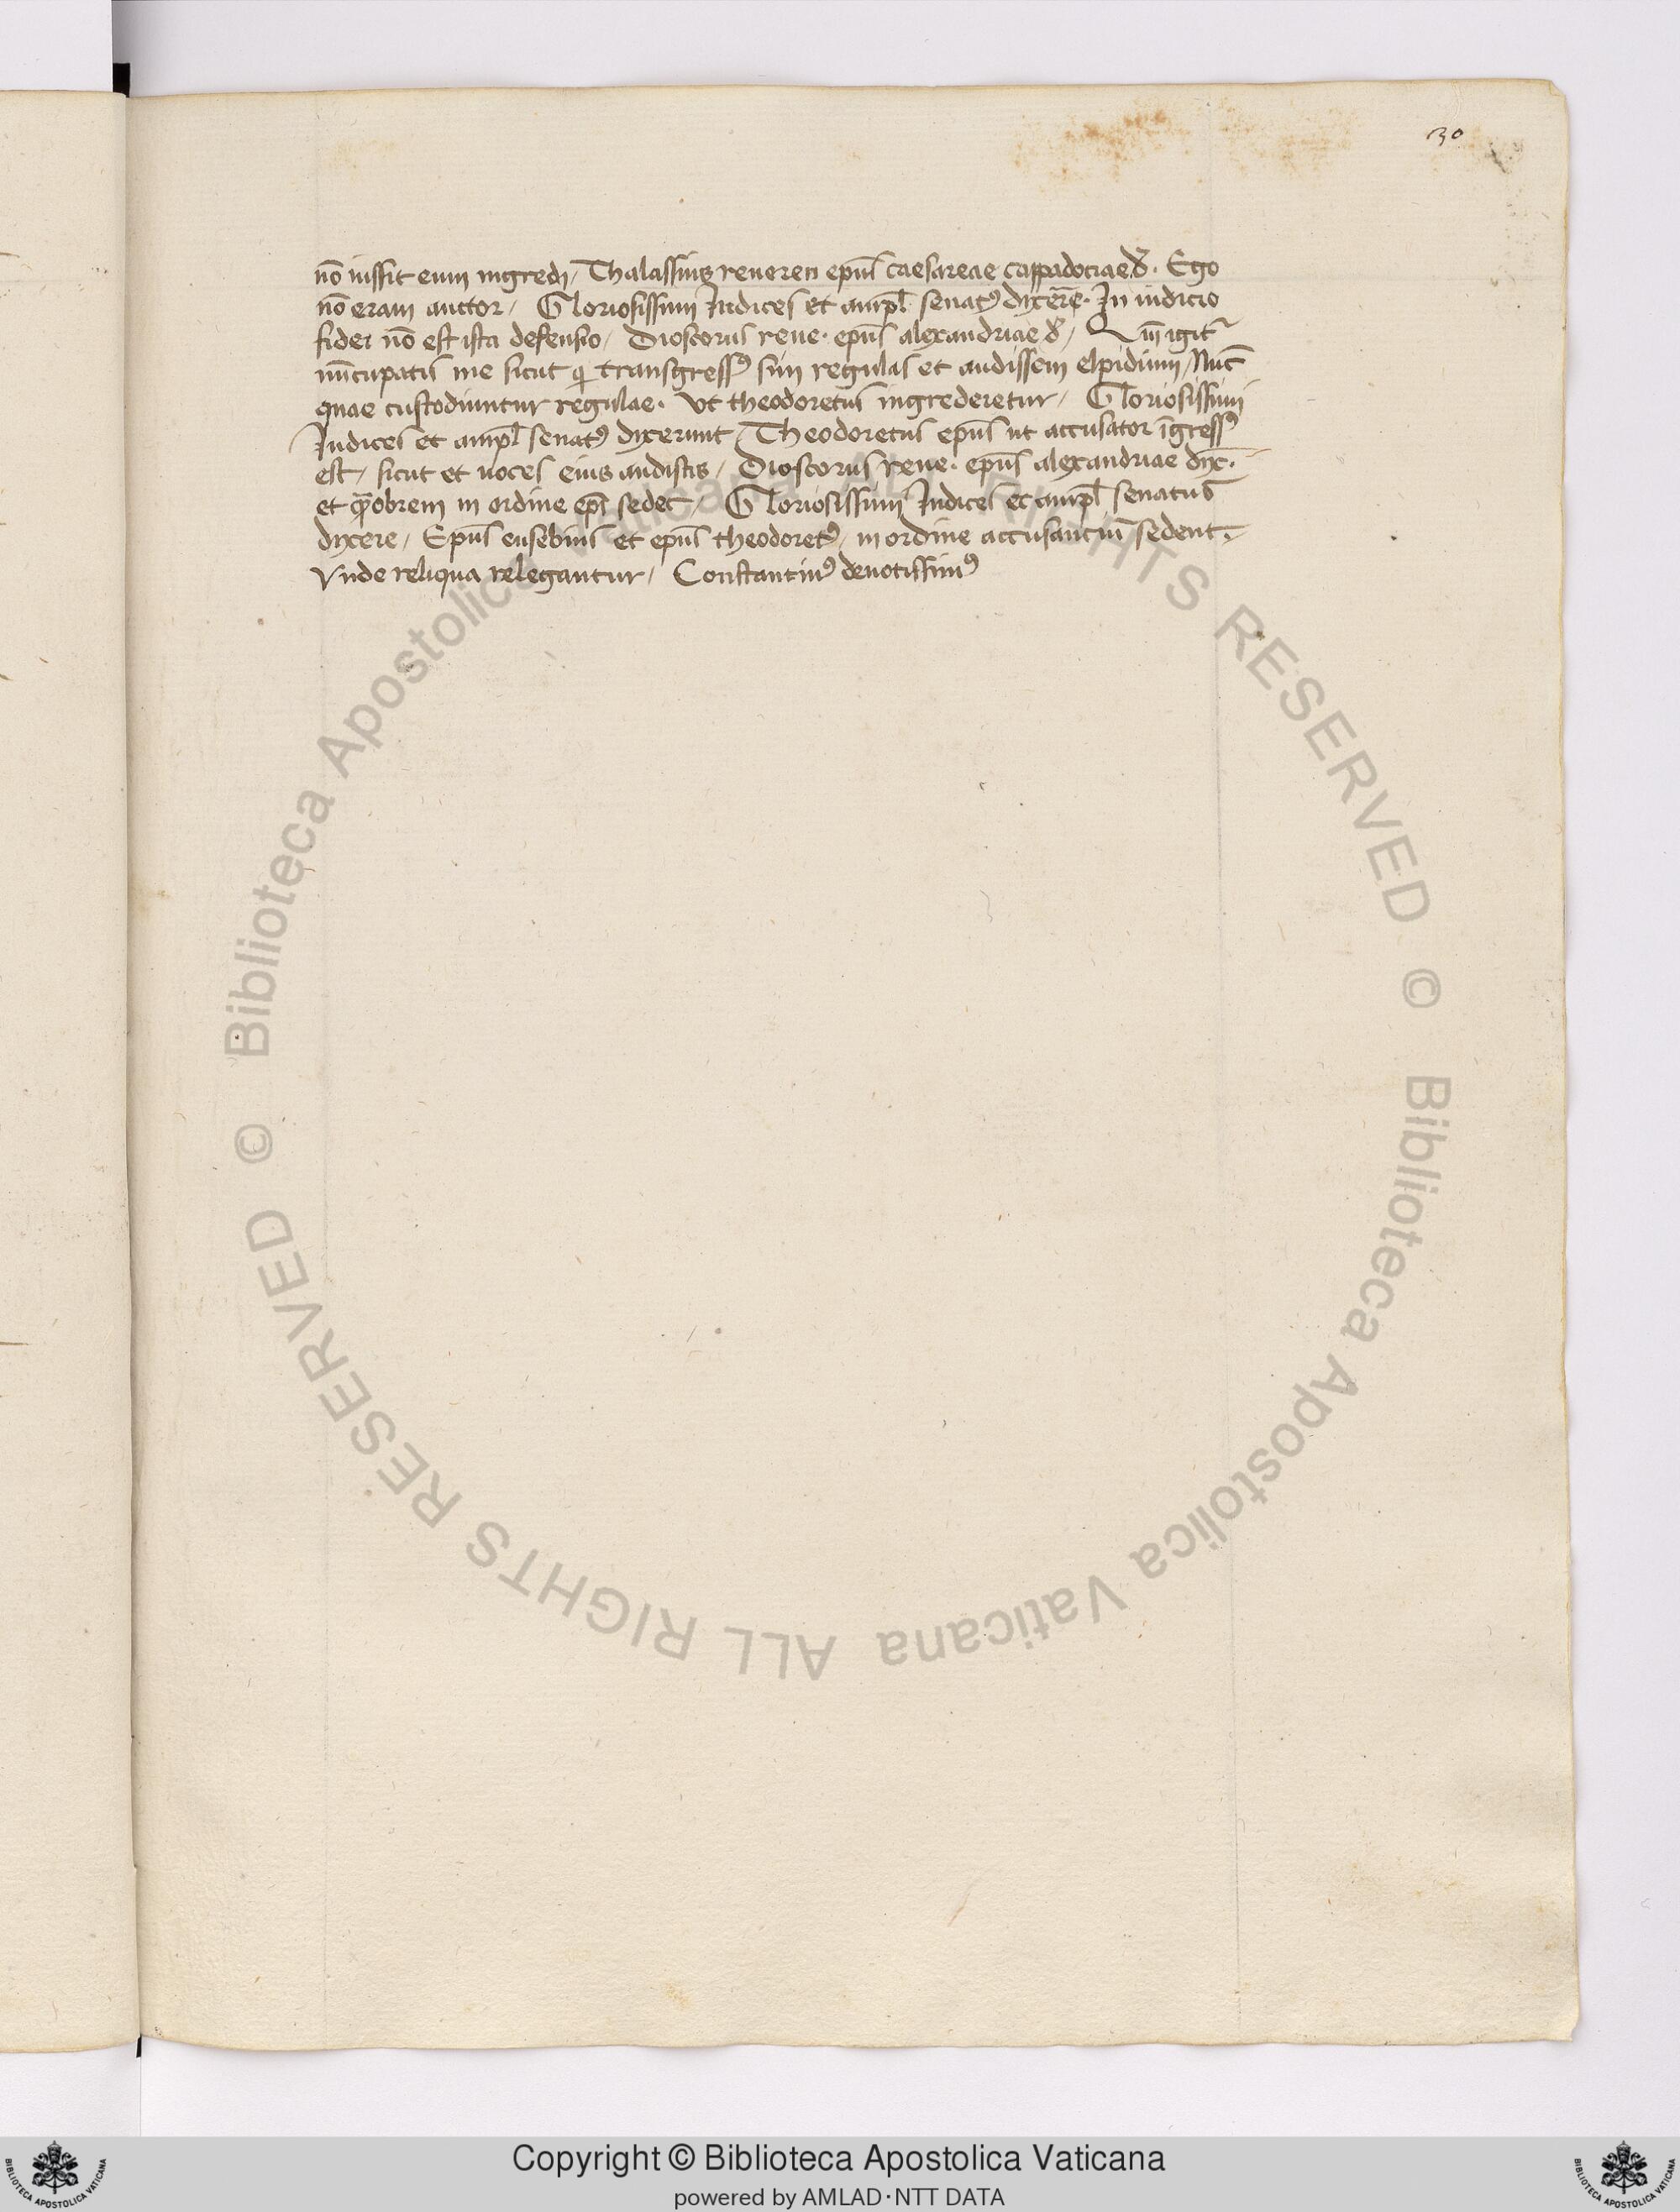 30
nō iussit eum ingredi / Thalassius reueren epūs caesareae cappadociae d̄. Ego
nō eram auctor / Gloriosissimi Iudices et ampl̄ senatꝰ dixerē. In iudicio
fidei nō est ista defensio / Dioscorus reue. epūs alexandriae d̄ / Qm̄ igit᷑
nūcupatis me sicut qi transgressꝰ sim regulas et audissem elpidium / Nūc
quae custodiuntur regulae. Vt theodoretus ingrederetur / Gloriosissimi
Iudices et ampl̄ senatꝰ dixerunt / Theodoretus epūs ut accusator īgressꝰ
est / sicut et uoces eius audistis / Dioscorus reue. epūs alexandriae dix̄.
et q̄obrem in ordine epī sedet / Gloriosissimi Iudices et ampl̄ senatus
dixere / Epūs eusebius et epūs theodoretꝰ / in ordine accusantiū sedent.
Vnde reliqua relegantur / Constantinꝰ deuotissimꝰ
© Biblioteca Apostolica Vaticana ALL RIGHTS RESERVED
© Biblioteca Apostolica Vaticana ALL RIGHTS RESERVED
Copyright © Biblioteca Apostolica Vaticana
powered by AMLAD·NTT DATA
BIBLIOTECA APOSTOLICA VATICANA
BIBLIOTECA APOSTOLICA VATICANA